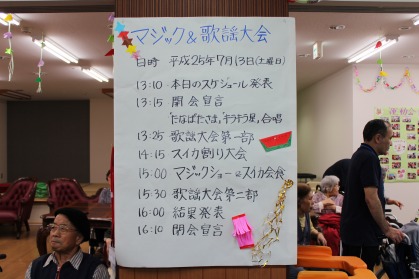 マジック&歌謡大会
日時 平成25年7月13日(土曜日)
13:10 本日のスケジュール発表
13:15 開会宣言
「たなばたさま」「キラキラ星」合唱
13:25 歌謡大会第一部
14:15 スイカ割り大会
15:00 マジックショー&スイカ会食
15:30 歌謡大会第二部
16:00 結果発表
16:10 閉会宣言